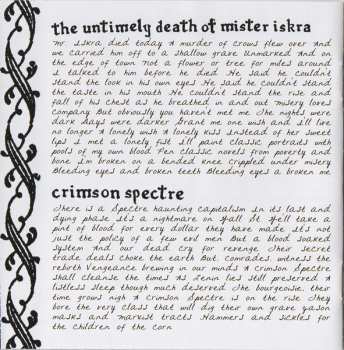 the untimely death of mister iskra
Mr. Iskra died today A murder of crows flew over And
we carried him off to a shallow grave Unmarked And on
the edge of town Not a flower or tree for miles around
I talked to him before he died He said he couldn't
stand the look in his own eyes He said he couldn't stand
the taste in his mouth He couldn't stand the rise and
fall of his chest as he breathed in and out Misery loves
company But obviously you haven't met me The nights were
dark Days were darker Grant me one wish and I'll live
no longer A lonely wish A lonely kiss Instead of her sweet
lips I met a lonely fist I'll paint classic portraits with
pools of my own blood Pen classic novels from poverty and
bone I'm broken on a bended knee crippled under misery
Bleeding eyes and broken teeth Bleeding eyes a broken me
crimson spectre
There is a Spectre haunting capitalism in its last and
dying phase It's a nightmare on Wall St. We'll take a
pint of blood for every dollar they have made It's not
just the policy of a few evil men But a blood soaked
system And our dead cry for revenge Their secret
trade deals choke the earth But, comrades, witness the
rebirth Vengeance brewing in our minds A Crimson Spectre
Shall cleanse the times As Lenin lies still preserved A
listless sleep though much deserved The bourgeoisie, their
time grows nigh A Crimson Spectre is on the rise They
bore the very class that will dig their own grave Jason
masks and Marxist tracts Hammers and sickles for
the children of the corn